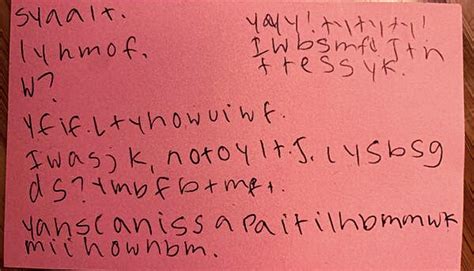 syaalt.
yayy! tytyty!
lyhmof.
Iwbsmfl Itn
ttessyk.
W?
yfif. Ltyhowuiwf.
Iwasjk, notoylt. J. lysbsg
ds? tmbfbtmft.
yahscanissapaitilhbmmwk
miihowhbm.